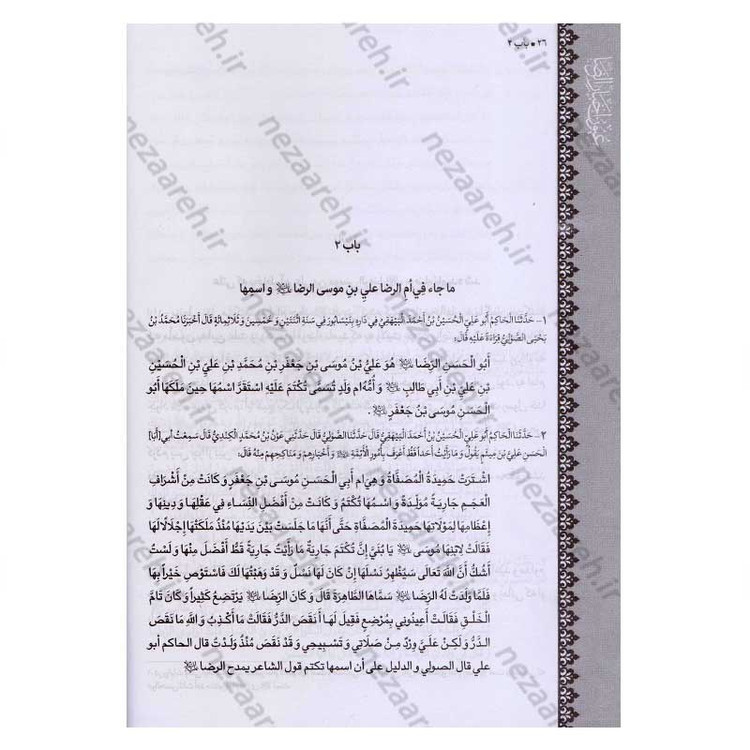 ٢٦ • باب ٢
عیون اخبار الرضا
باب ٢
ما جاء فِي أم الرضا علي بنِ موسى الرضا و اسمِها
١- حَدَّثَنَا الْحَاكِمُ أَبُو عَلِيٍّ الْحُسَيْنُ بْنُ أَحْمَدَ الْبَيْهَقِيُّ فِي دَارِهِ بِنَيْسَابُورَ فِي سَنَةِ اثْنَتَيْنِ وَ خَمْسِينَ وَ ثَلَاثِمِائَةٍ قَالَ أَخْبَرَنَا مُحَمَّدُ بْنُ
يَحْيَى الصُّولِيُّ قِرَاءَةً عَلَيْهِ قَالَ:
أَبُو الْحَسَنِ الرِّضَا هُوَ عَلِيُّ بْنُ مُوسَى بْنِ جَعْفَرِ بْنِ مُحَمَّدِ بْنِ عَلِيِّ بْنِ الْحُسَيْنِ
بْنِ عَلِيِّ بْنِ أَبِي طَالِبٍ وَ أُمُّهُ أم وَلَدٍ تُسَمَّى تُكْتَمَ عَلَيْهِ اسْتَقَرَّ اسْمُهَا حِينَ مَلَكَهَا أَبُو
الْحَسَنِ مُوسَى بْنُ جَعْفَرٍ .
٢- حَدَّثَنَا الْحَاكِمُ أَبُو عَلِيٍّ الْحُسَيْنُ بْنُ أَحْمَدَ الْبَيْهَقِيُّ قَالَ حَدَّثَنَا الصُّولِيُّ قَالَ حَدَّثَنِي عَوْنُ بْنُ مُحَمَّدٍ الْكِنْدِيُّ قَالَ سَمِعْتُ أبي [أَبَا]
الْحَسَنِ عَلِيَّ بْنَ مِيثَمٍ يَقُولُ وَ مَا رَأَيْتُ أَحَداً قَطُّ أَعْرَفَ بِأُمُورِ الْأَئِمَّةِ وَ أَخْبَارِهِمْ وَ مَنَاكِحِهِمْ مِنْهُ قَالَ:
اشْتَرَتْ حَمِيدَةُ الْمُصَفَّاةُ وَ هِيَ أم أَبِي الْحَسَنِ مُوسَى بْنِ جَعْفَرٍ وَ كَانَتْ مِنْ أَشْرَافِ
الْعَجَمِ جَارِيَةً مُوَلَّدَةً وَ اسْمُهَا تُكْتَمُ وَ كَانَتْ مِنْ أَفْضَلِ النِّسَاءِ فِي عَقْلِهَا وَ دِينِهَا وَ
إِعْظَامِهَا لِمَوْلَاتِهَا حَمِيدَةَ الْمُصَفَّاةِ حَتَّى أَنَّهَا مَا جَلَسَتْ بَيْنَ يَدَيْهَا مُنْذُ مَلَكَتْهَا إِجْلَالًا لَهَا
فَقَالَتْ لِابْنِهَا مُوسَى يَا بُنَيَّ إِنَّ تُكْتَمَ جَارِيَةٌ مَا رَأَيْتُ جَارِيَةً قَطُّ أَفْضَلَ مِنْهَا وَ لَسْتُ
أَشُكُّ أَنَّ اللَّهَ تَعَالَى سَيُظْهِرُ نَسْلَهَا إِنْ كَانَ لَهَا نَسْلٌ وَ قَدْ وَهَبْتُهَا لَكَ فَاسْتَوْصِ خَيْراً بِهَا
فَلَمَّا وَلَدَتْ لَهُ الرِّضَا سَمَّاهَا الطَّاهِرَةَ قَالَ وَ كَانَ الرِّضَا يَرْتَضِعُ كَثِيراً وَ كَانَ تَامَّ
الْخَلْقِ فَقَالَتْ أَعِينُونِي بِمُرْضِعٍ فَقِيلَ لَهَا أَ نَقَصَ الدَّرُّ فَقَالَتْ مَا أَكْذِبُ وَ اللَّهِ مَا نَقَصَ
الدَّرُّ وَ لَكِنْ عَلَيَّ وِرْدٌ مِنْ صَلَاتِي وَ تَسْبِيحِي وَ قَدْ نَقَصَ مُنْذُ وَلَدْتُ قال الحاكم أبو
علي قال الصولي و الدليل على أن اسمها تكتم قول الشاعر يمدح الرضا
nezaareh.ir